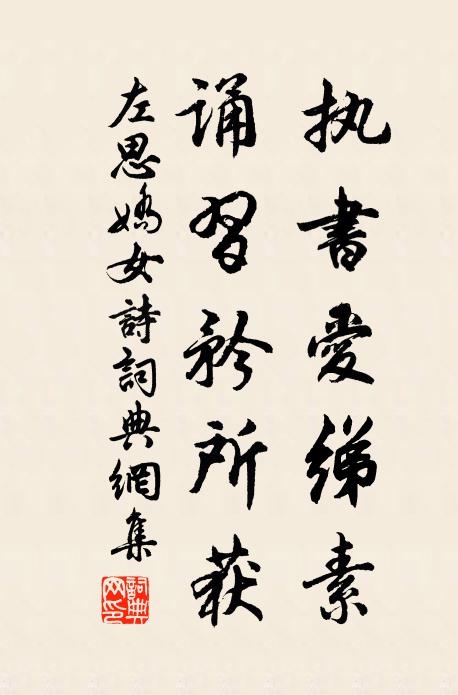 执書愛綈素
誦習矜所获
左思嬌女詩詞典網集
詞典网印